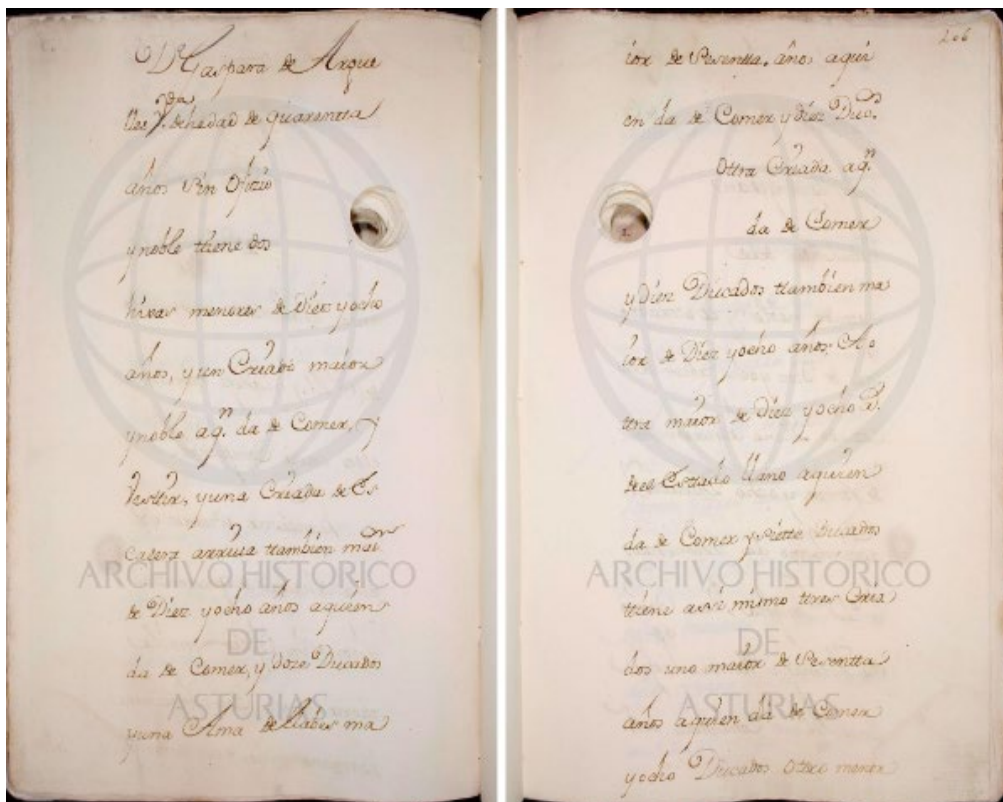 Dª Gaspara de Argue
lles Vᵈᵃ de hedad de quarentta
años sin ofizio
y noble thiene dos
hixas menores de Diez y ocho
años, y un Criado maior
y noble a qⁿ. da de Comer, y
Vesttir, y una Criada de Es
calera arriva tambien maiᵒʳ
de Diez y ocho años a quien
da de Comer, y doze Ducados
y una Ama de llabes ma
206
ior de Sesentta. años a qui
en da de Comer y diez Ducˢ.
Ottra Criada a qⁿ.
da de Comer
y diez Ducados ttambien ma
ior de Diez y ocho años. A o
ttra maior de diez y ocho a̅.
del Esttado llano a quien
da de Comer y siette Ducados
ttiene assi mismo ttres Cria
dos uno maior de Sesentta
años a quien da de Comer
y ocho Ducados Ottro menor
ARCHIVO HISTÓRICO
DE
ASTURIAS
ARCHIVO HISTÓRICO
DE
ASTURIAS